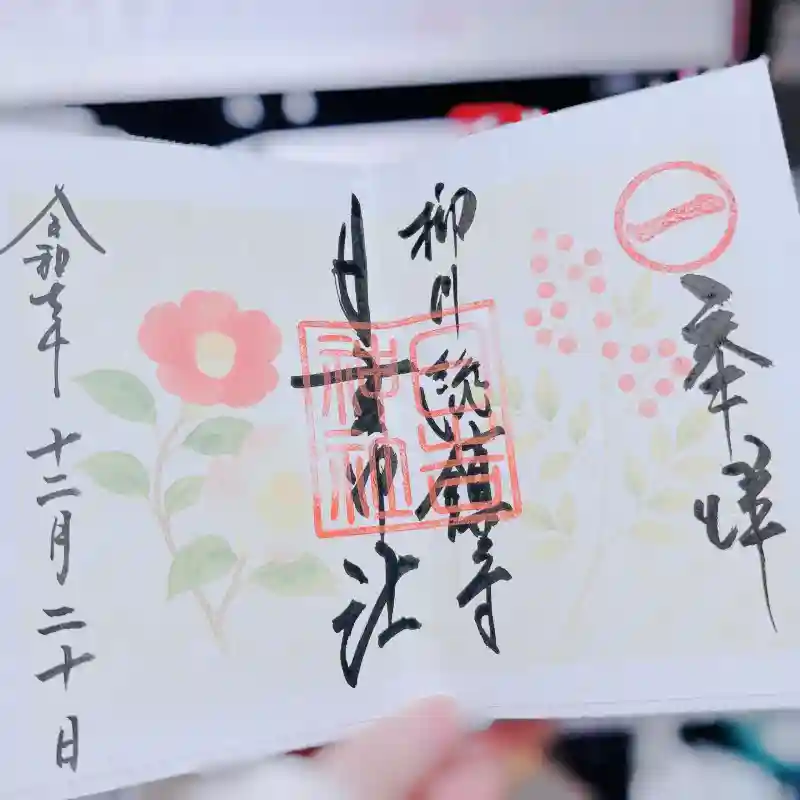 一
奉拝
柳川総鎮守
日吉神社
日吉神社
令和七年
十二月
二十日